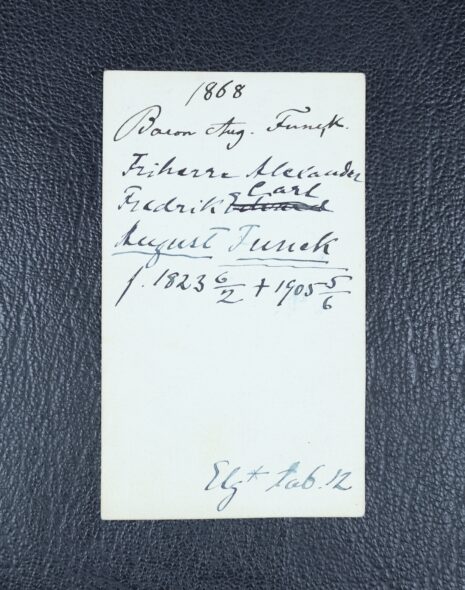 1868
Baron Aug. Funck.
Friherre Alexander
Carl
Fredrik Edvard
August Funck
f. 1823 6/2 + 1905 5/6
Elg* tab. 12